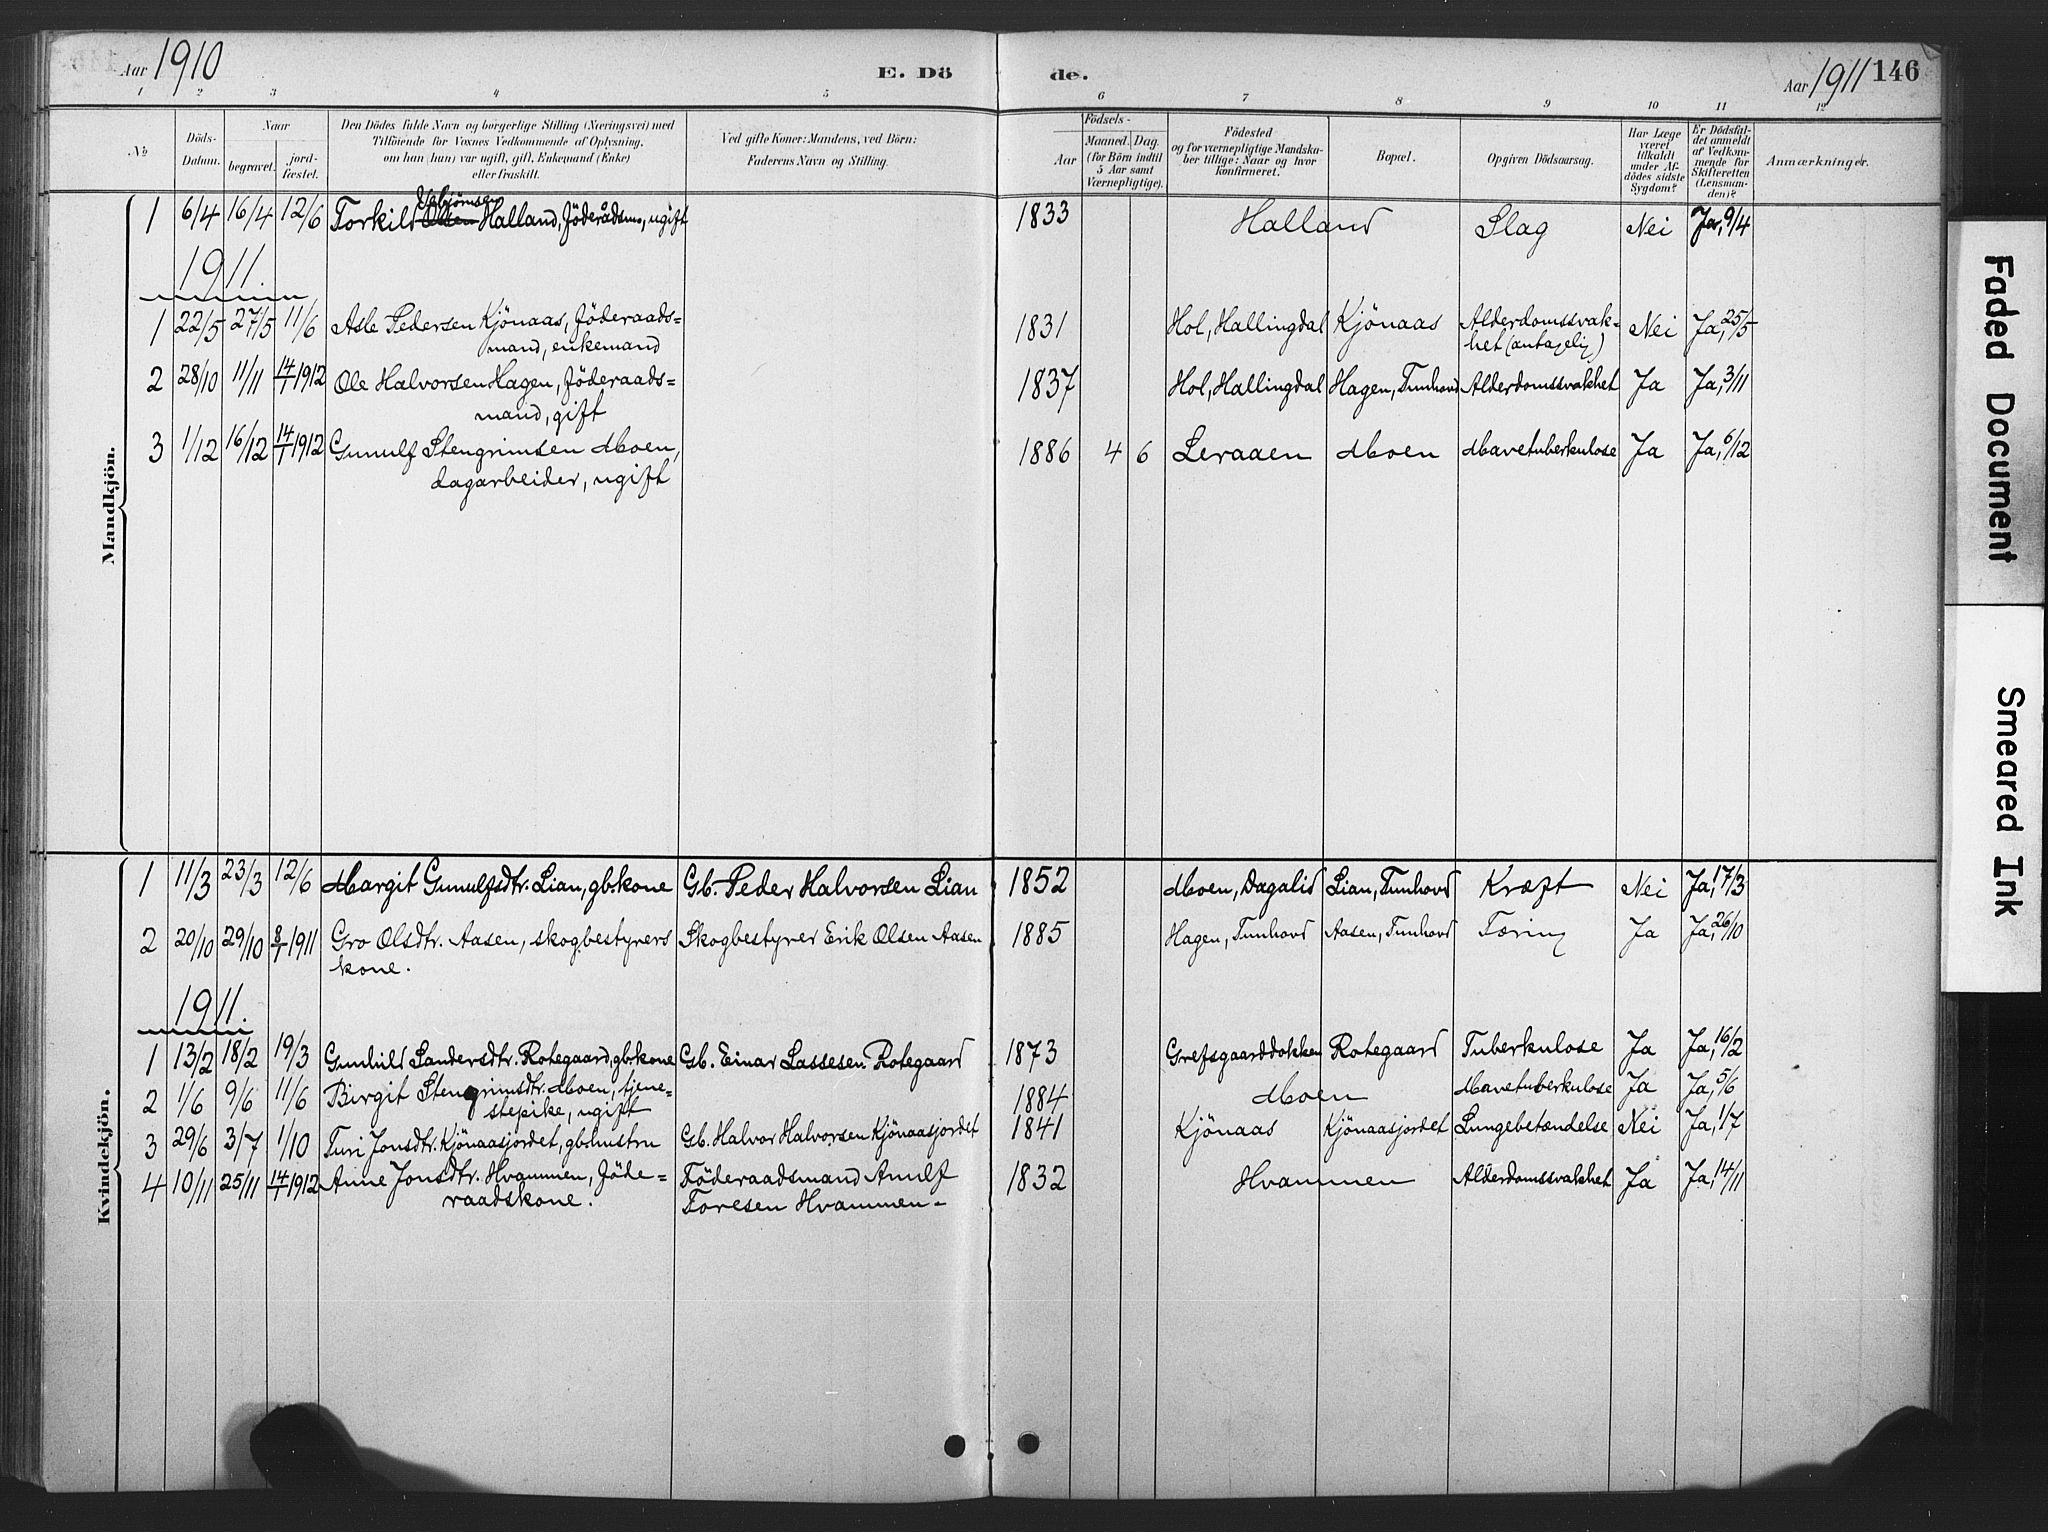 Aar 1910
E. Dö
de.
Aar 1911 146
1 2 3 4 5 6 7 8 9 10 11 12
No
Döds-
Datum.
Naar
begravet.
jord-
fæstet.
Den Dödes fulde Navn og borgerlige Stilling (Næringsvei) med
Tilföiende for Voxnes Vedkommende af Oplysning,
om han (hun) var ugift, gift, Enkemand (Enke)
eller fraskilt.
Ved gifte Koner: Mandens, ved Börn:
Faderens Navn og Stilling.
Födsels-
Aar
Maaned. Dag.
(for Börn indtil
5 Aar samt
Værnepligtige).
Födested
og for værnepligtige Mandska-
ber tillige: Naar og hvor
konfirmeret.
Bopæl.
Opgiven Dödsaarsag.
Har Læge
været
tilkaldt
under Af-
dödes sidste
Sygdom?
Er Dödsfal-
det anmeldt
af Vedkom-
mende for
Skifteretten
(Lensman-
den)?
Anmærkninger.
Mandkjön.
1 6/4 16/4 12/6 Torkild Olsen Halland, Föderådsm., ugift 1833 Halland Slag Nei Ja, 9/4
1911.
1 22/5 27/5 11/6 Asle Pedersen Kjönaas, Föderaads=
mand, enkemand
1831 Hol, Hallingdal Kjönaas Alderdomssvak=
het (antagelig)
Nei Ja, 25/5
2 28/10 11/11 14/1 1912 Ole Halvorsen Hagen, Föderaads=
mand, gift
1837 Hol, Hallingdal Hagen, Tunhovd Alderdomssvakhet Ja Ja, 3/11
3 1/12 16/12 14/1 1912 Gunulf Stengrimsen Moen,
dagarbeider, ugift
1886 4 6 Leraaen Moen Mavetuberkulose Ja Ja, 6/12
Kvindekjön.
1 11/3 23/3 12/6 Margit Gunulfsdtr. Lian, gb.kone Gb. Peder Halvorsen Lian 1852 Moen, Dagalid Lian, Tunhovd Kræft Nei Ja, 17/3
2 20/10 29/10 8/1 1911 Gro Olsdtr. Aasen, skogbestyrers
kone.
Skogbestyrer Erik Olsen Aasen 1885 Hagen, Tunhovd Aasen, Tunhovd Tæring Ja Ja, 26/10
1911.
1 13/2 18/2 19/3 Gunhild Sandersdtr. Rotegaard, gb.kone Gb. Einar Lassesen Rotegaard 1873 Grefsgaarddokken Rotegaard Tuberkulose Ja Ja, 16/2
2 1/6 9/6 11/6 Birgit Stengrimsdtr. Moen, tjene-
stepike, ugift
1884 Moen Mavetuberkulose Ja Ja, 5/6
3 29/6 3/7 1/10 Turi Jonsdtr. Kjönaasjordet, gb.hustru Gb. Halvor Halvorsen Kjönaasjordet 1841 Kjönaas Kjönaasjordet Lungebetændelse Nei Ja, 1/7
4 10/11 25/11 14/1 1912 Anne Jonsdtr. Hvammen, Föde=
raadskone.
Föderaadsmand Arnulf
Toresen Hvammen-
1832 Hvammen Alderdomssvakhet Ja Ja, 14/11
Faded Document
Smeared Ink